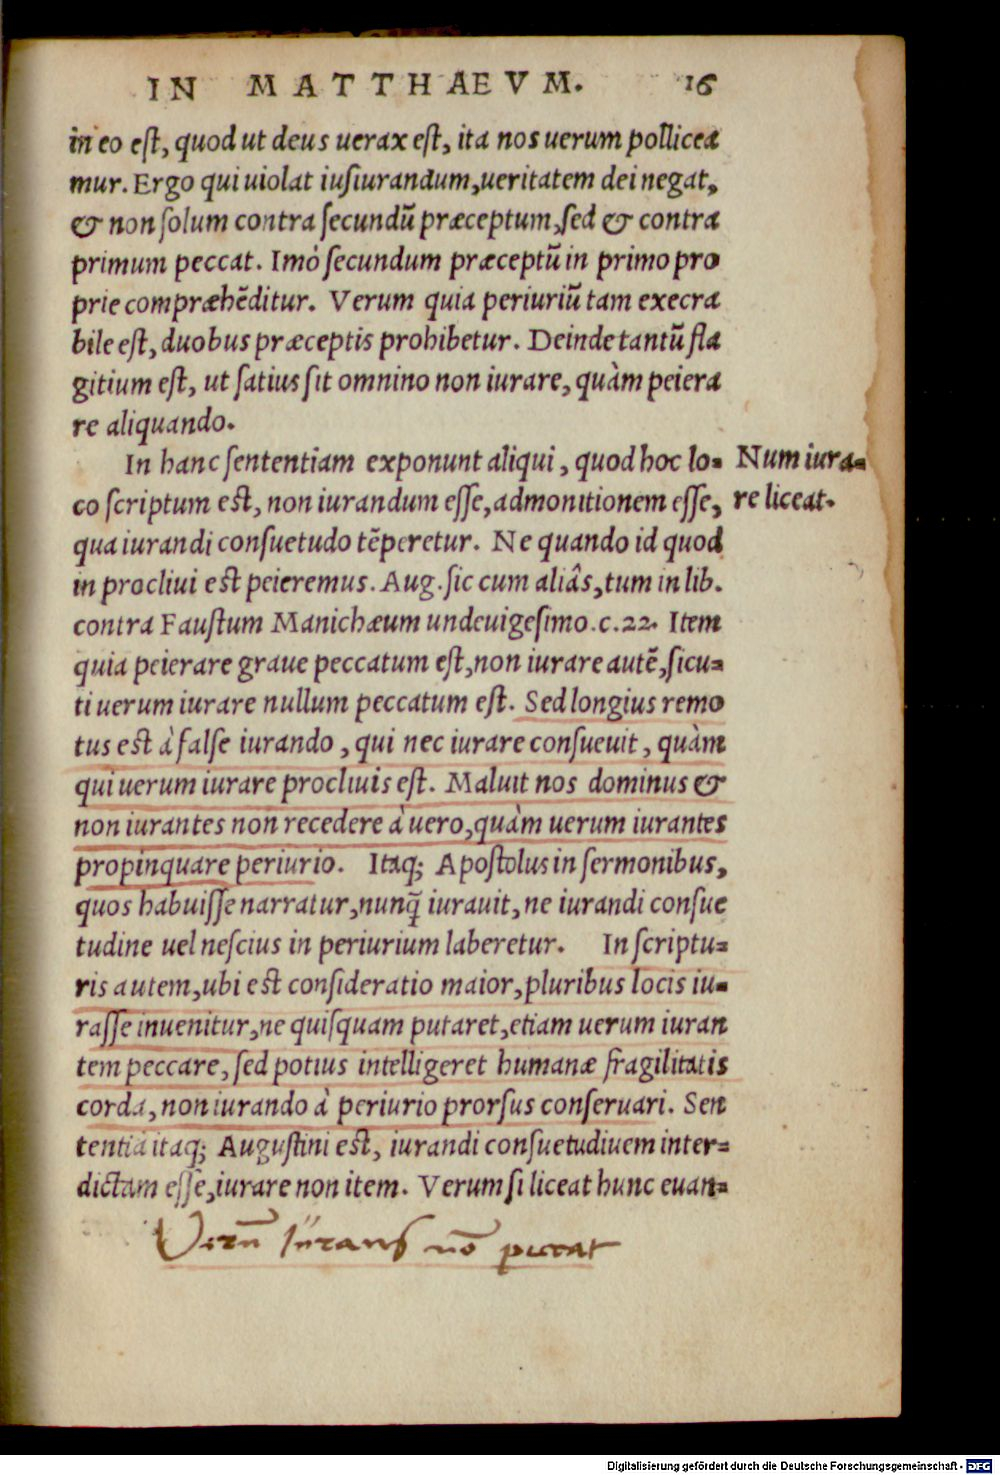 IN MATTHAEVM. 16
in eo eſt, quod ut deus uerax eſt, ita nos uerum pollicea
mur. Ergo qui uiolat iuſiurandum, ueritatem dei negat,
& non ſolum contra ſecundū præceptum, ſed & contra
primum peccat. Imò ſecundum præceptū in primo pro
prie compræhēditur. Verum quia periuriū tam execra
bile eſt, duobus præceptis prohibetur. Deinde tantū fla
gitium eſt, ut ſatius ſit omnino non iurare, quàm peiera
re aliquando.
In hanc ſententiam exponunt aliqui, quod hoc lo-
Num iura-
co ſcriptum eſt, non iurandum eſſe, admonitionem eſſe,
re liceat.
qua iurandi conſuetudo tēperetur. Ne quando id quod
in procliui eſt peieremus. Aug. ſic cum aliâs, tum in lib.
contra Fauſtum Manichæum undeuigeſimo. c. 22. Item
quia peierare graue peccatum eſt, non iurare autē, ſicu-
ti uerum iurare nullum peccatum eſt. Sed longius remo
tus eſt à falſe iurando, qui nec iurare conſueuit, quàm
qui uerum iurare procliuis eſt. Maluit nos dominus &
non iurantes non recedere à uero, quàm uerum iurantes
propinquare periurio. Itaq; Apoſtolus in ſermonibus,
quos habuiſſe narratur, nunq̃ iurauit, ne iurandi conſue
tudine uel neſcius in periurium laberetur. In ſcriptu-
ris autem, ubi eſt conſideratio maior, pluribus locis iu-
raſſe inuenitur, ne quiſquam putaret, etiam uerum iuran
tem peccare, ſed potius intelligeret humanæ fragilitatis
corda, non iurando à periurio prorſus conſeruari. Sen
tentia itaq; Auguſtini eſt, iurandi conſuetudiuem inter-
dictam eſſe, iurare non item. Verum ſi liceat hunc euan-
Verū iurans nō peccat
Digitalisierung gefördert durch die Deutsche Forschungsgemeinschaft - DFG